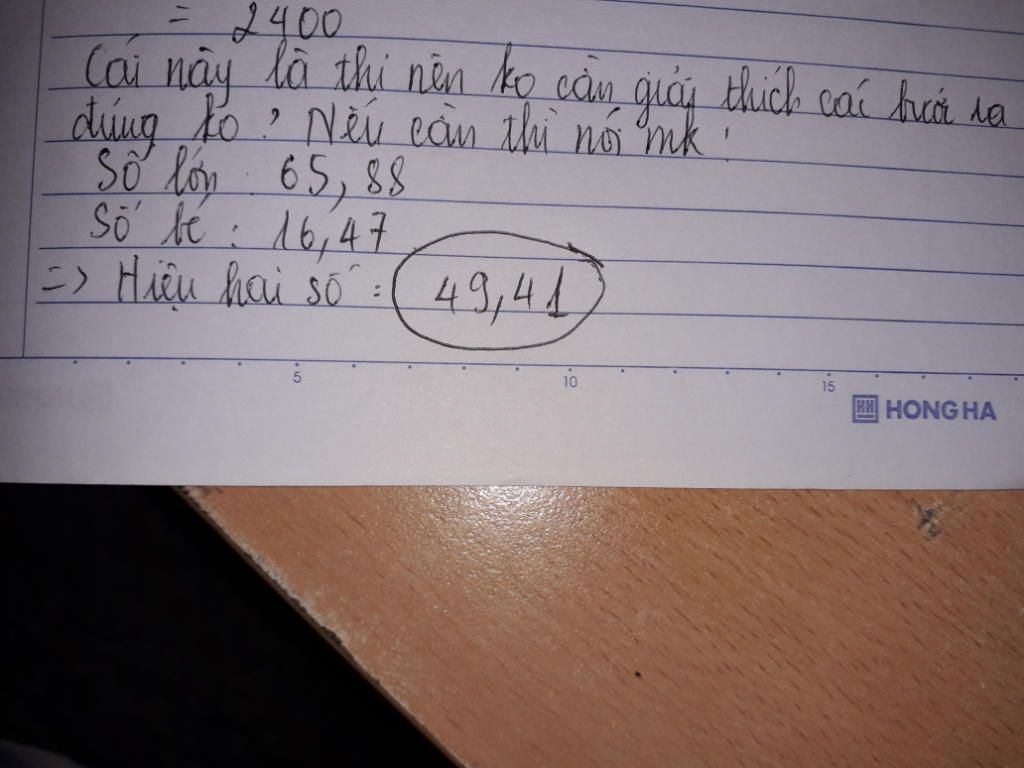 = 2400
Cái này là thi nên ko cần giải thích các bước ra
đúng ko? Nếu cần thì nói mk!
Số lớn: 65,88
Số bé: 16,47
=> Hiệu hai số = 49,41
5 10 15
HONG HA